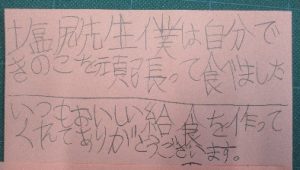 塩尻先生僕は自分で
きのこを頑張って食べました
いつもおいしい給食を作って
くれてありがとうございます。